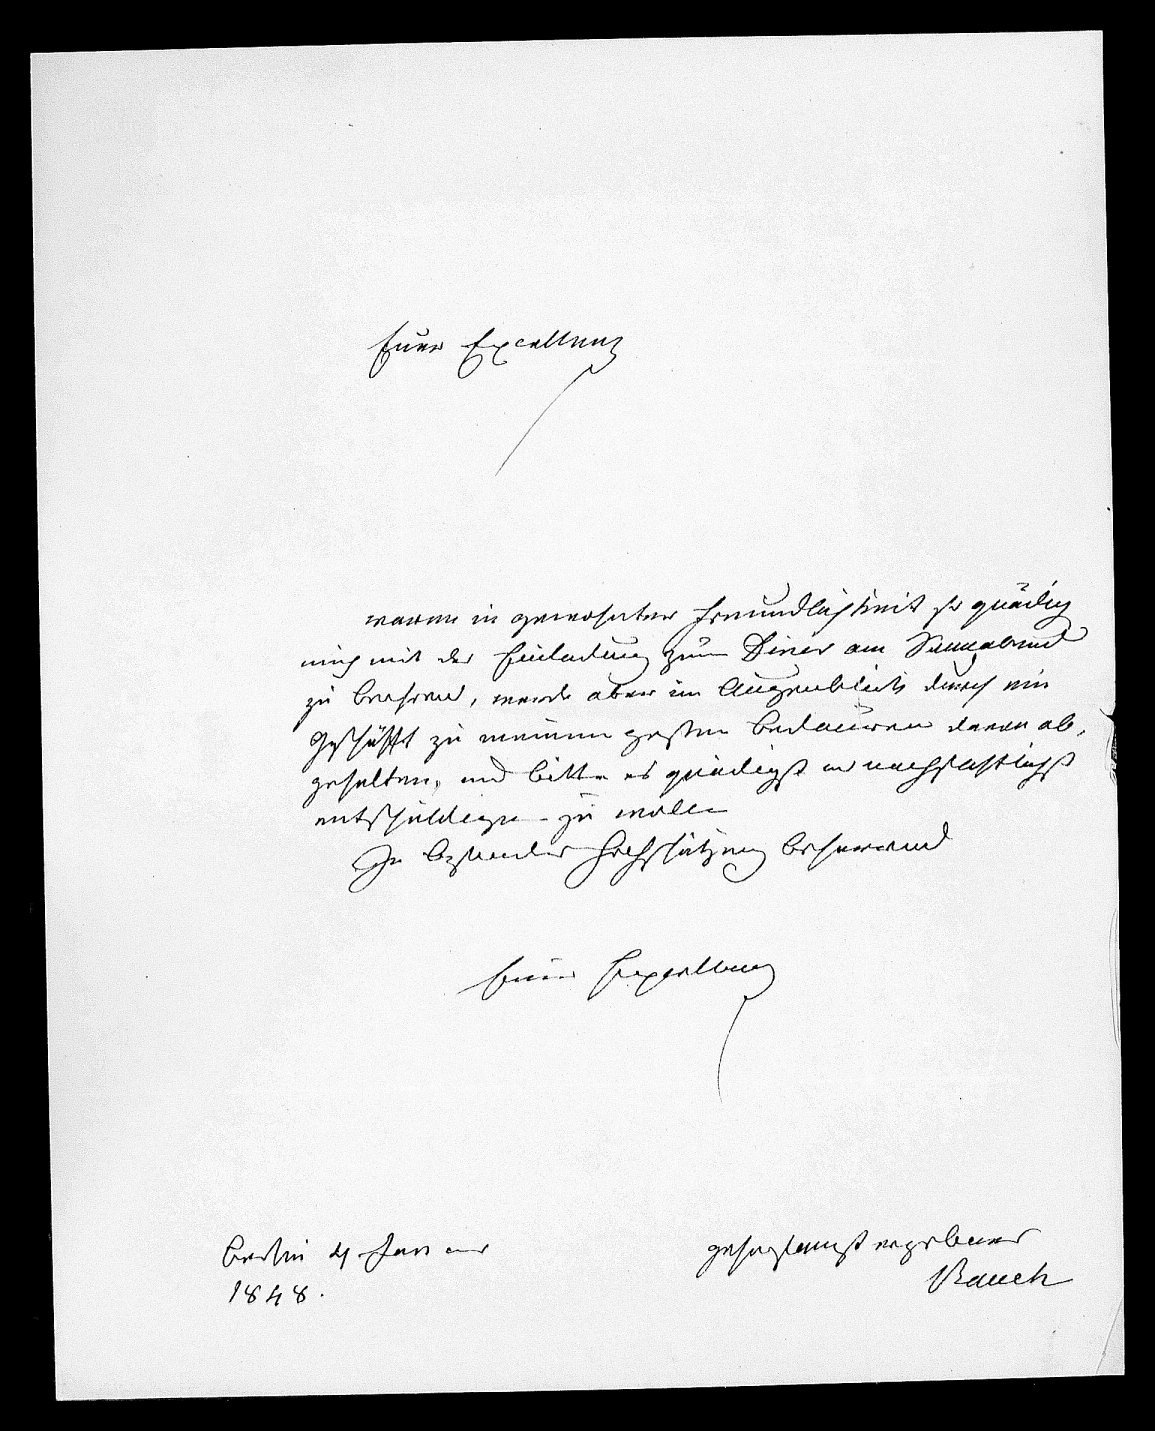 Euer Excellenz
waren in gewohnter Freundlichkeit so gnädig
mich mit der Einladung zum Diner am Sonnabend
zu beehren, werde aber im Augenblick durch ein
Geschäfft zu meinem großen Bedauern davon ab,
gehalten, und bitte es gnädigst und nachsichtigst
entschuldigen zu wollen
In besonder Hochschätzung beharrend
Euer Excellenz
gehorsamst ergebener
Rauch
Berlin 4 Januar
1848.